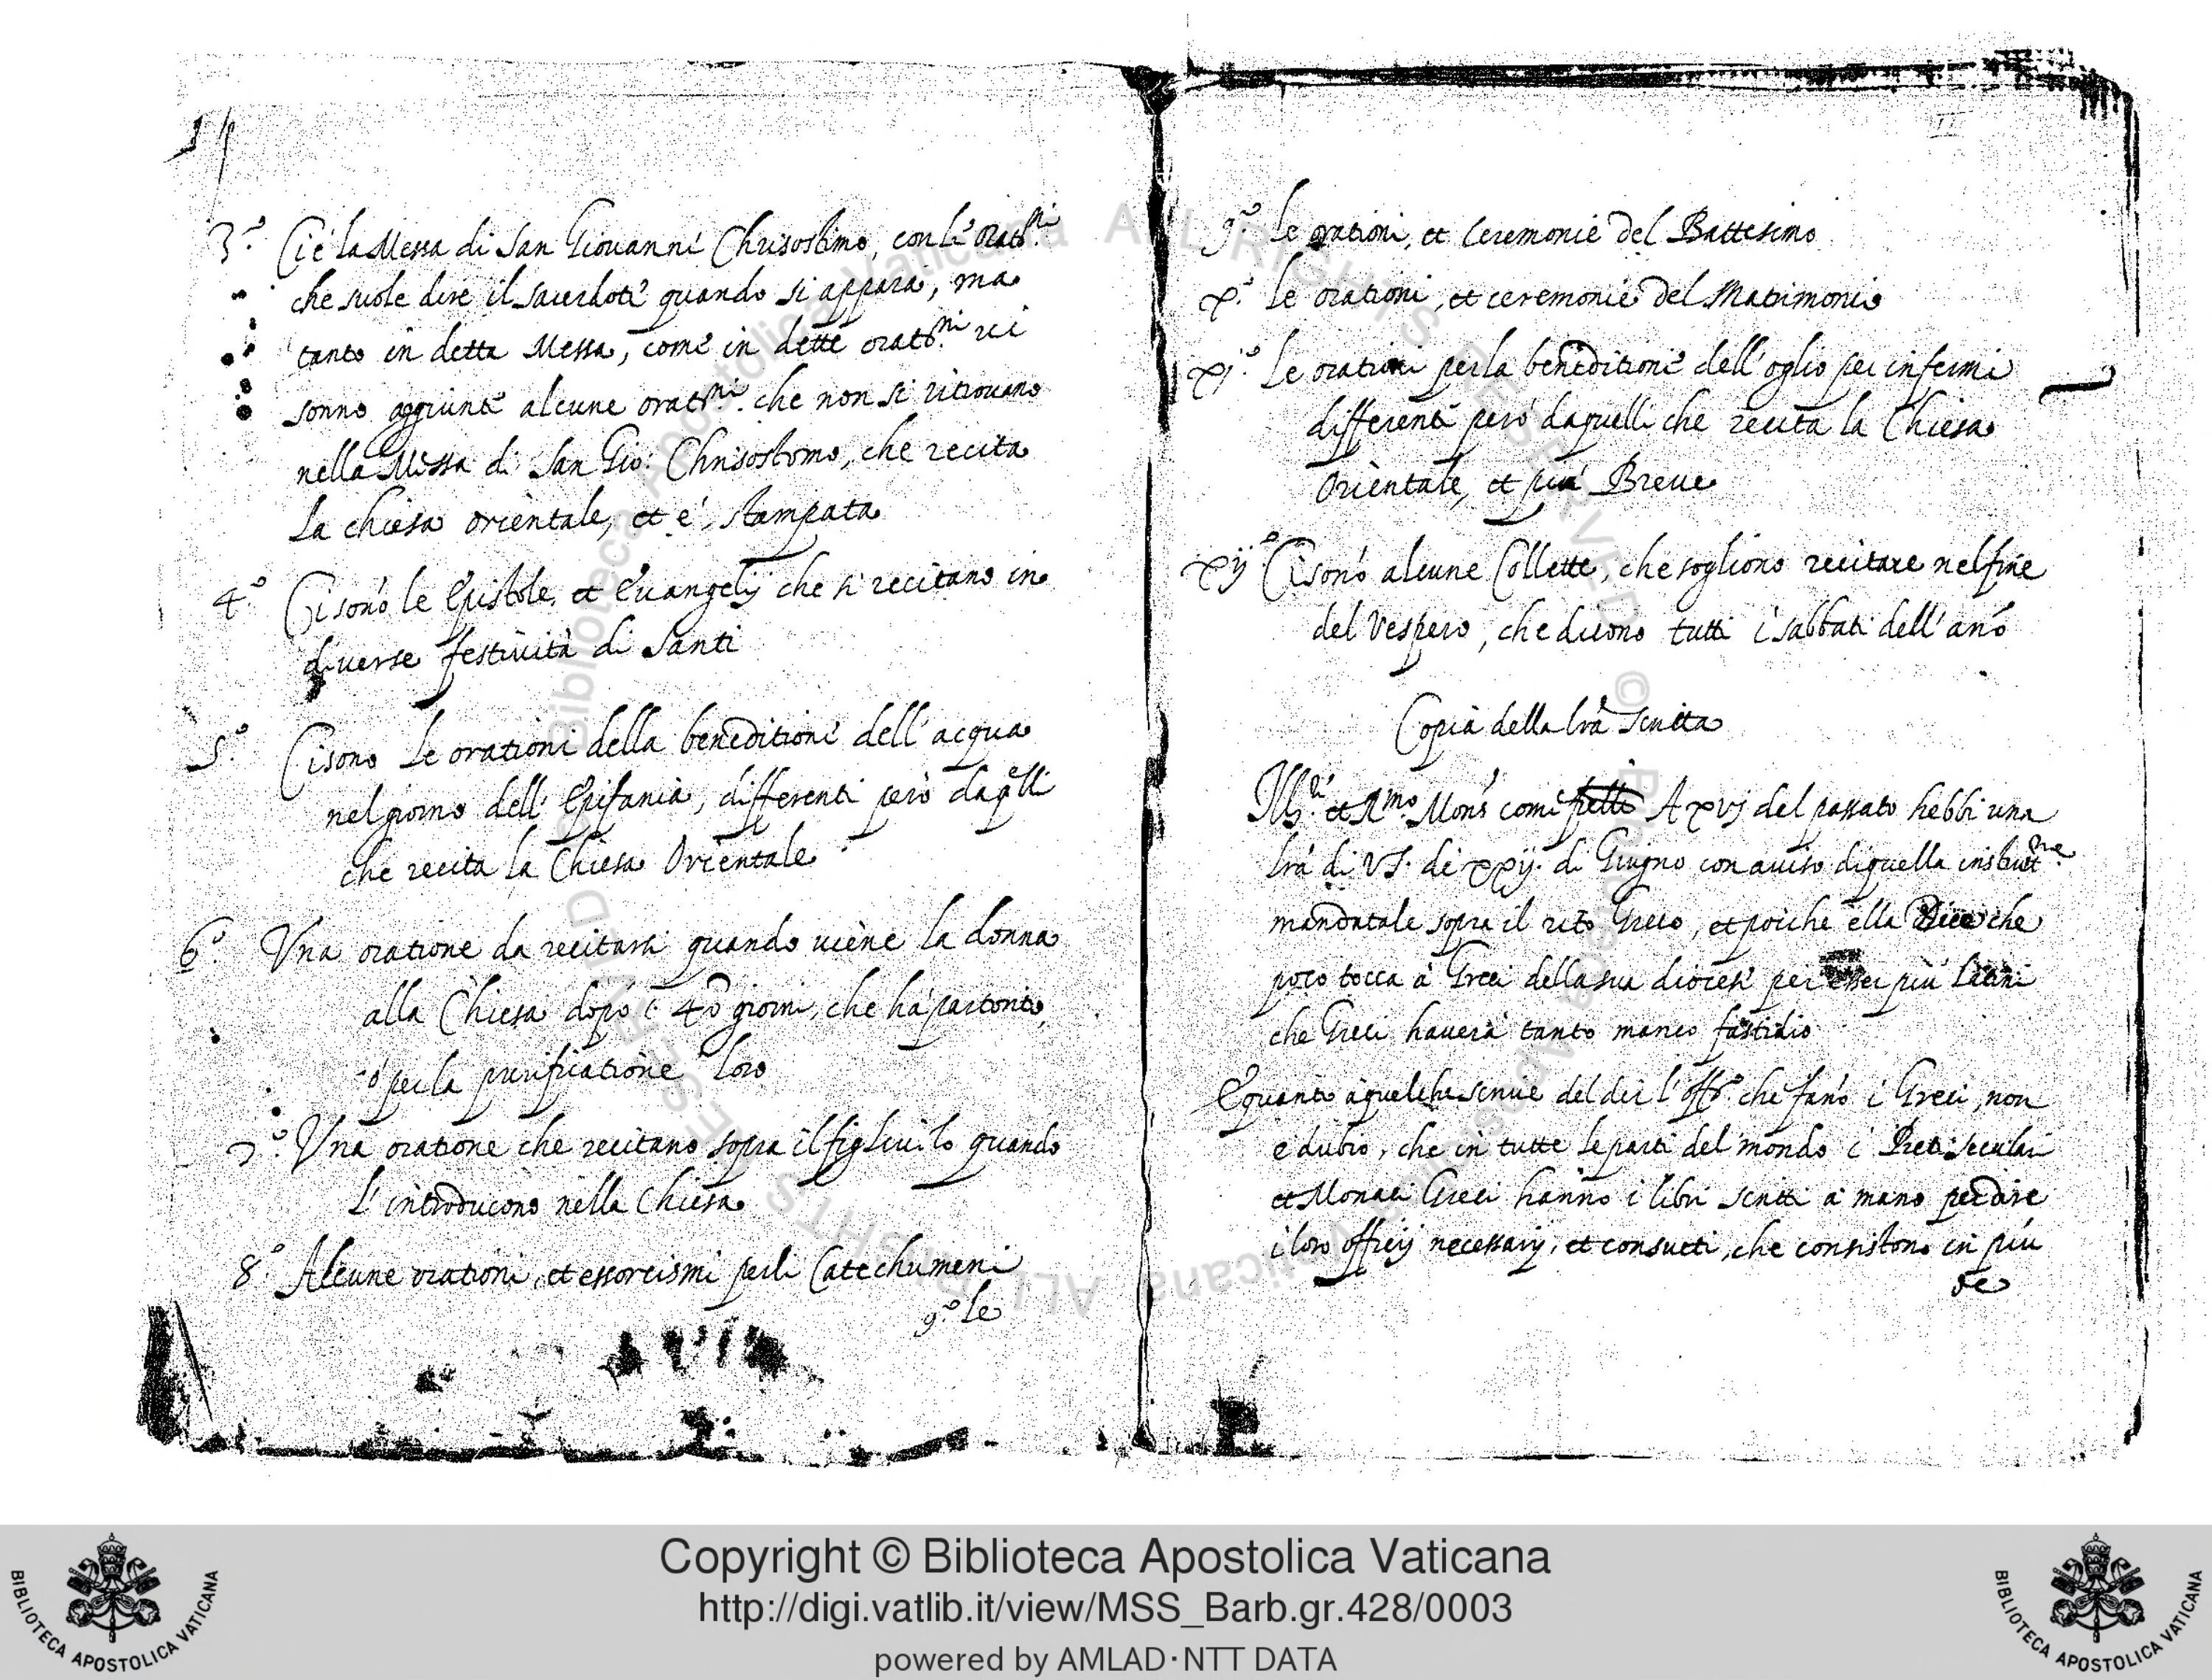 3.º Ci è la Messa di San Giovanni Chrisostimo, con le orat.ni
che suole dire il sacerdote quando si appara, ma
tanto in detta Messa, come in dette orat.ni vi
sonno aggiunte alcune orat.ni che non si ritrovano
nella Messa di San Gio: Chrisostomo, che recita
La chiesa orientale, et è stampata
4.º Ci sonó le Epistole, et Evangelij che si recitano in
diverse festività di Santi
5.º Ci sono Le orationi della beneditione dell'acqua
nel giorno dell'Epifania, differenti però da qelli
che recita la Chiesa Orientale
6.º Una oratione da recitarsi quando viene la donna
alla Chiesa dopò i 40 giorni, che ha partorito,
per la purificatione loro
7.º Una oratione che recitano sopra il figliuolo quando
L'introducono nella Chiesa
8.º Alcune orationi, et essorcismi per li Catechumeni
9.º le
9.º le orationi, et Ceremonie del Battesimo
x.º le orationi, et ceremonie del Matrimonio
xj.º Le orationi per la beneditione dell'oglio per infermi
differenti però da quelli che recita la Chiesa
Orientale, et più Breve
xij.º Ci sonó alcune Collette, che sogliono recitare nel fine
del Vespero, che dicono tutti i sabbati dell'anó
Copia della lrá scritta
Ill.re et R.mo Mons. come A xvj del passato hebbi una
lrá di VS. de xxij. di Giugno con aviso di quella instrutt.ne
mandatale sopra il rito Greco, et poiche ella Dice che
poco tocca à Greci della sua diocesi per esser più Latini
che Greci haverà tanto manco fastidio
E quanto à quel che scrive del dir l'off.º che fanó i Greci, non
e dubio, che in tutte le parti del mondo i Preti secular
et Monaci Greci hanno i libri scritti a mano per dire
i loro officij necessarij, et consueti, che consistono in più
de
Copyright © Biblioteca Apostolica Vaticana
http://digi.vatlib.it/view/MSS_Barb.gr.428/0003
powered by AMLAD·NTT DATA
BIBLIOTECA APOSTOLICA VATICANA
BIBLIOTECA APOSTOLICA VATICANA